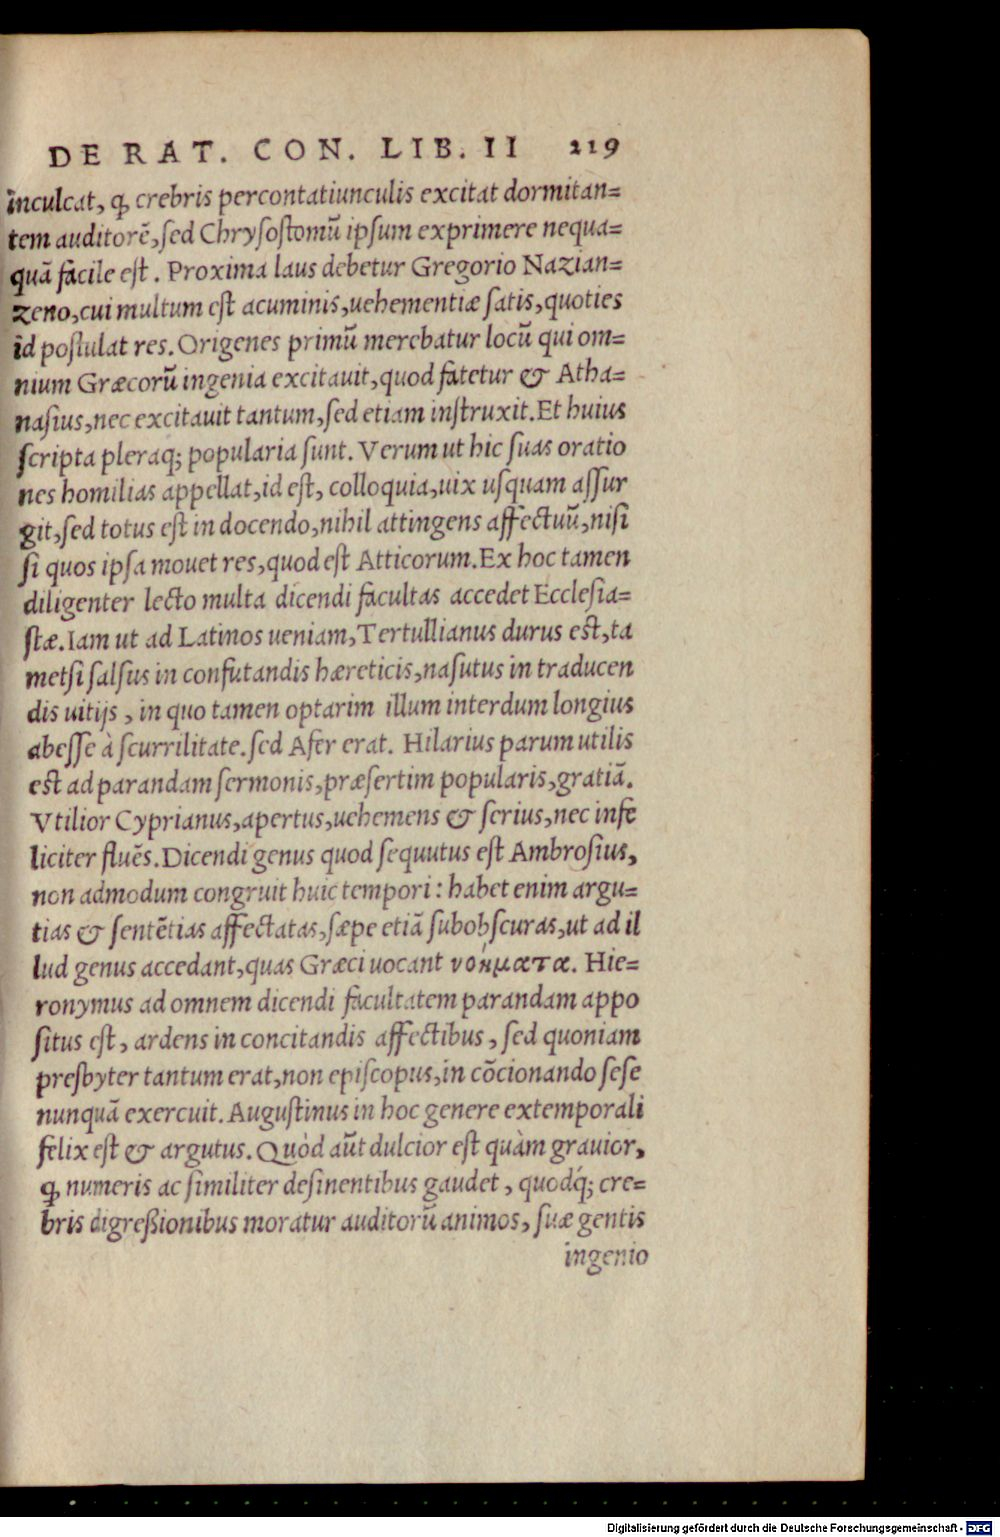 DE RAT. CON. LIB. II 219
inculcat, ꝙ crebris percontatiunculis excitat dormitan=
tem auditorē, sed Chrysostomū ipsum exprimere nequa=
quā facile est. Proxima laus debetur Gregorio Nazian=
zeno, cui multum est acuminis, uehementiæ satis, quoties
id postulat res. Origenes primū merebatur locū qui om=
nium Græcorū ingenia excitauit, quod fatetur & Atha=
nasius, nec excitauit tantum, sed etiam instruxit. Et huius
scripta pleraq; popularia sunt. Verum ut hic suas oratio
nes homilias appellat, id est, colloquia, uix usquam assur
git, sed totus est in docendo, nihil attingens affectuū, nisi
si quos ipsa mouet res, quod est Atticorum. Ex hoc tamen
diligenter lecto multa dicendi facultas accedet Ecclesia=
stæ. Iam ut ad Latinos ueniam, Tertullianus durus est, ta
metsi salsus in confutandis hæreticis, nasutus in traducen
dis uitijs, in quo tamen optarim illum interdum longius
abesse à scurrilitate. sed Afer erat. Hilarius parum utilis
est ad parandam sermonis, præsertim popularis, gratiā.
Vtilior Cyprianus, apertus, uehemens & serius, nec infe
liciter fluēs. Dicendi genus quod sequutus est Ambrosius,
non admodum congruit huic tempori: habet enim argu=
tias & sentētias affectatas, sæpe etiā subobscuras, ut ad il
lud genus accedant, quas Græci uocant νοήματα. Hie=
ronymus ad omnem dicendi facultatem parandam appo
situs est, ardens in concitandis affectibus, sed quoniam
presbyter tantum erat, non episcopus, in cōcionando sese
nunquā exercuit. Augustinus in hoc genere extemporali
felix est & argutus. Quòd aūt dulcior est quàm grauior,
ꝙ numeris ac similiter desinentibus gaudet, quodq́; cre=
bris digreßionibus moratur auditorū animos, suæ gentis
ingenio
Digitalisierung gefördert durch die Deutsche Forschungsgemeinschaft - DFG